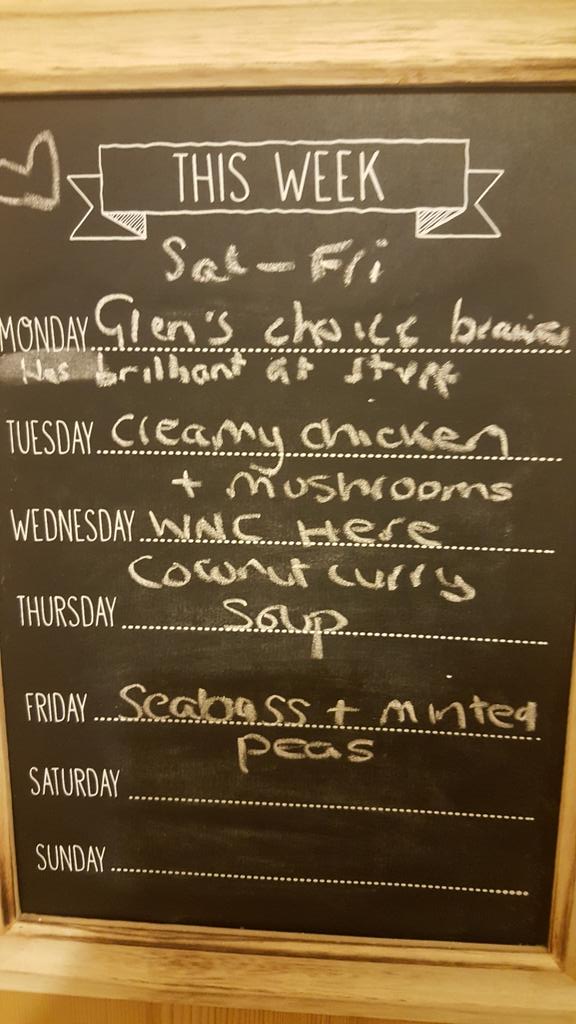 THIS WEEK
Sat - Fri
MONDAY Glen's choice
brilliant at stuff
TUESDAY Creamy chicken
+ mushrooms
WEDNESDAY WNC Here
Coconut curry
THURSDAY Soup
FRIDAY Seabass + minted
peas
SATURDAY
SUNDAY